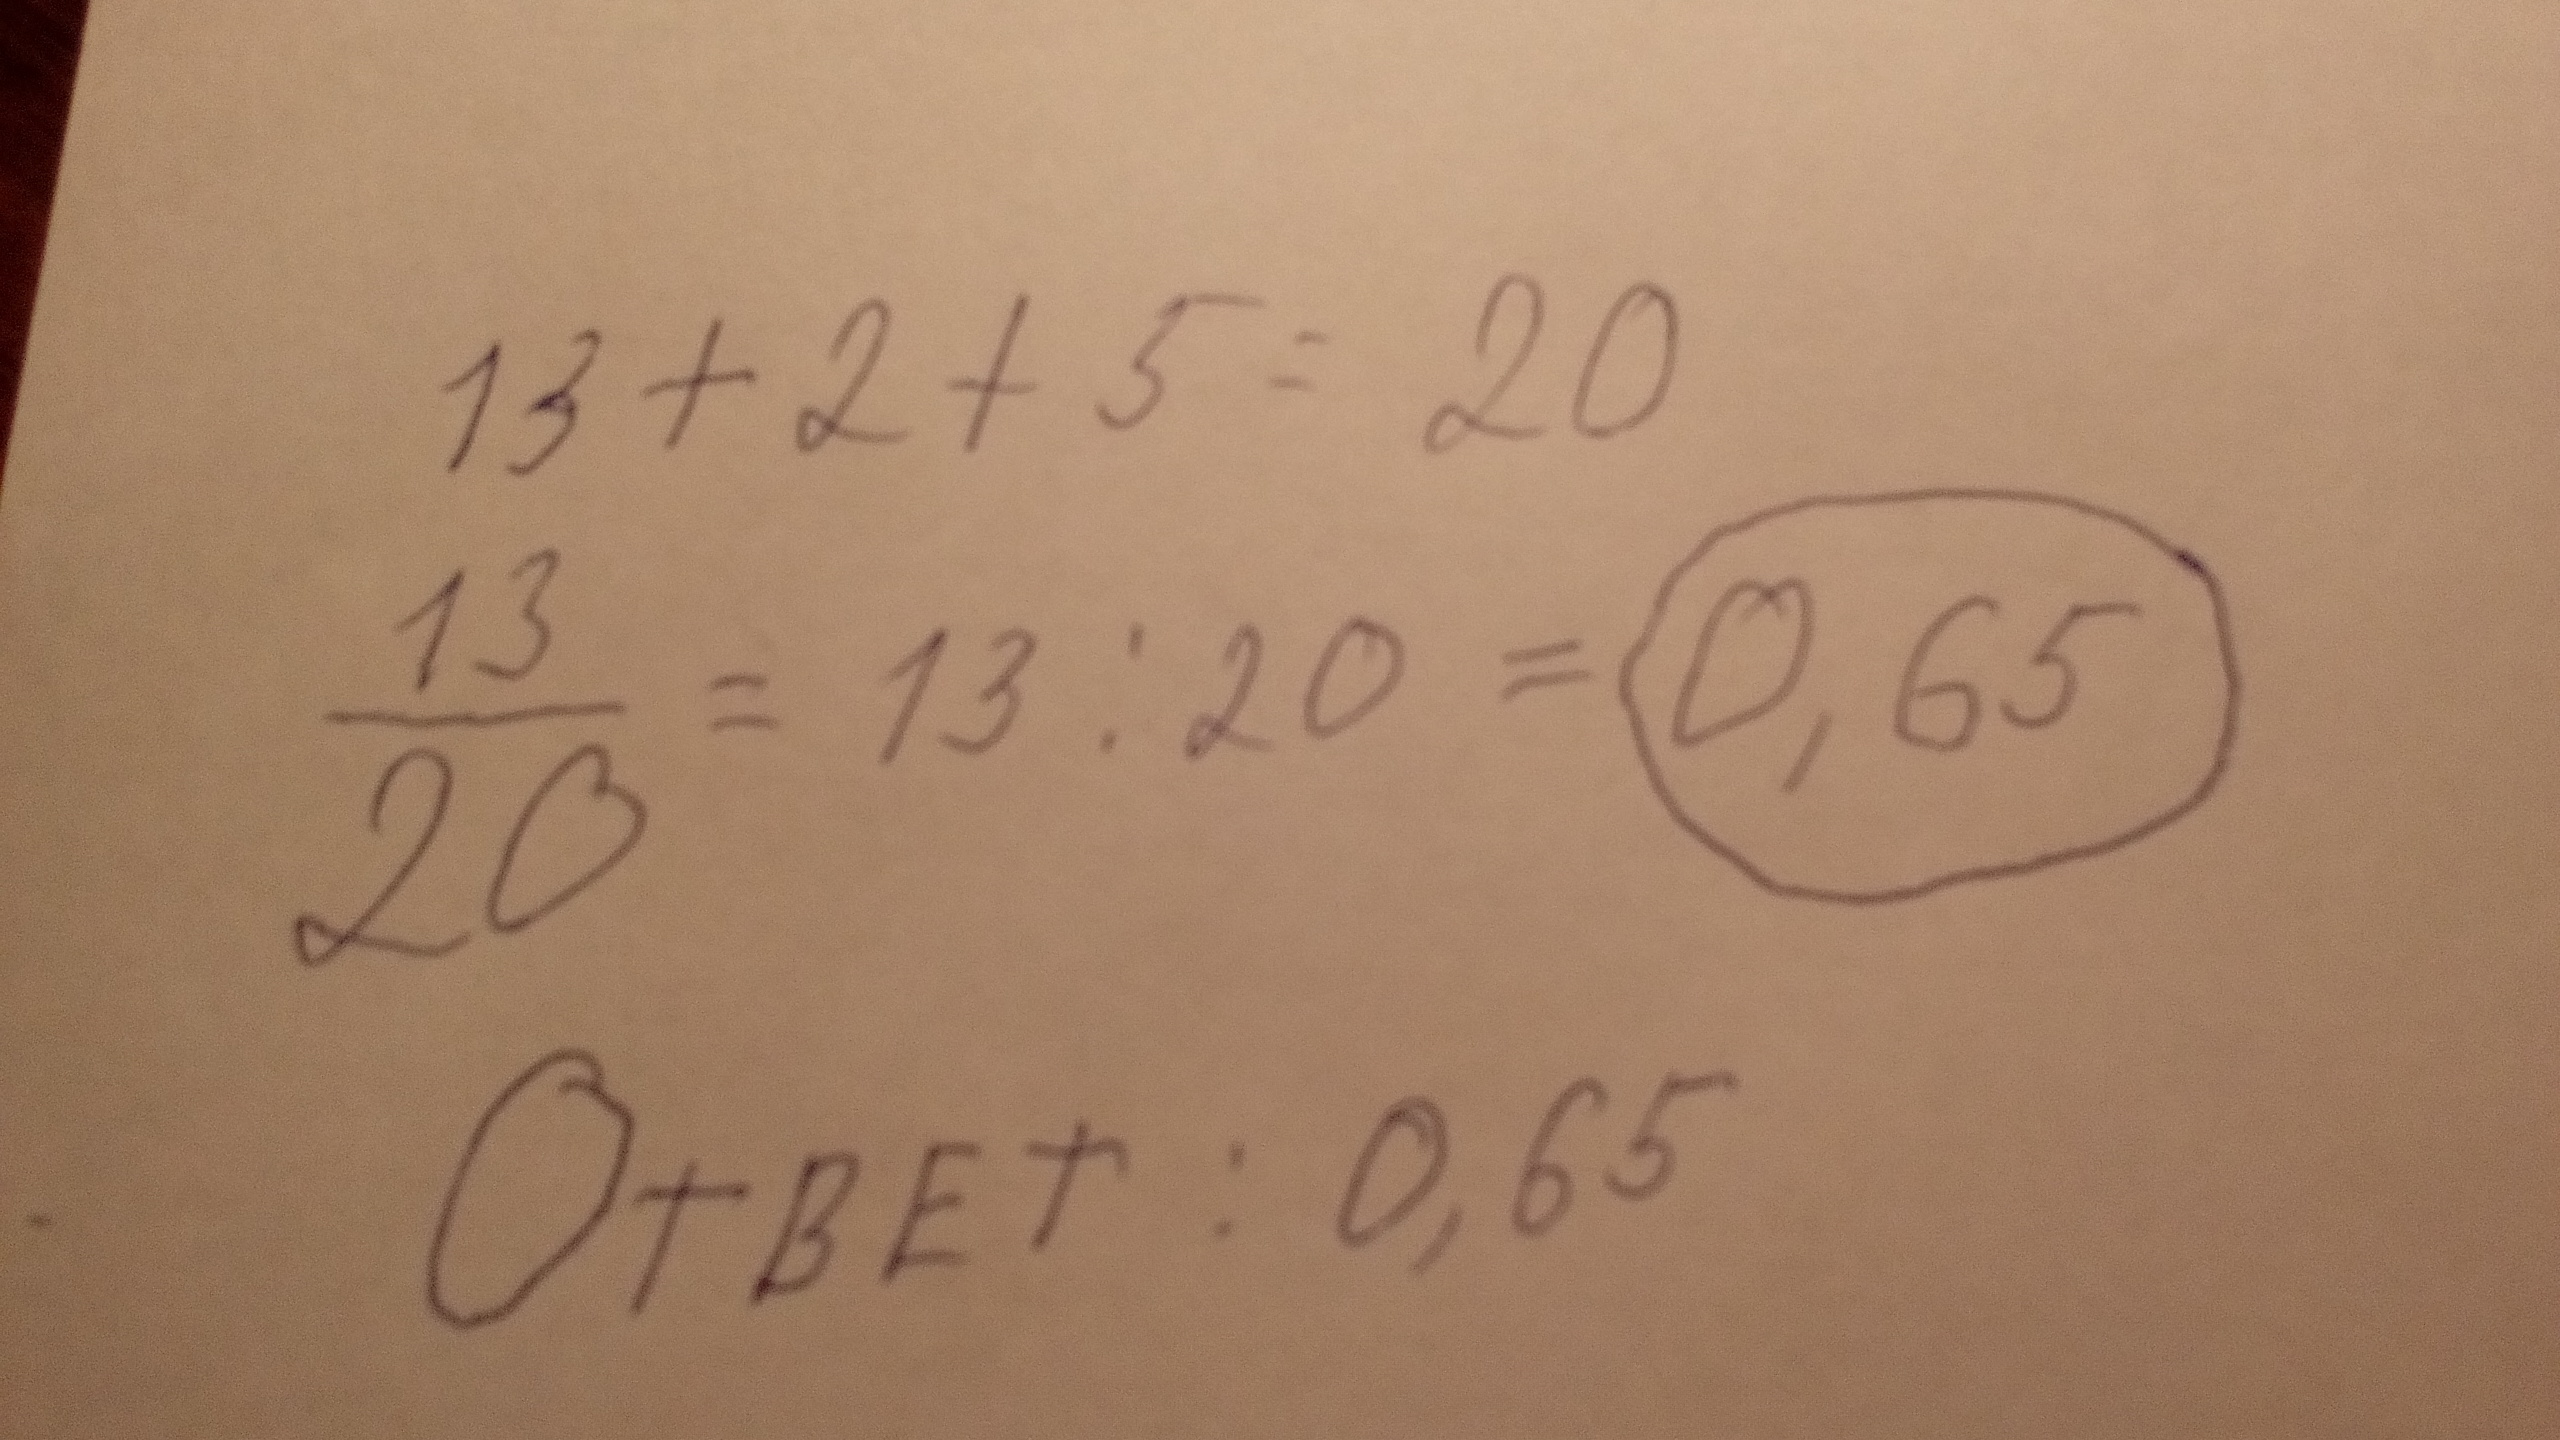 13 + 2 + 5 = 20
13/20 = 13 : 20 = 0,65
Ответ : 0,65